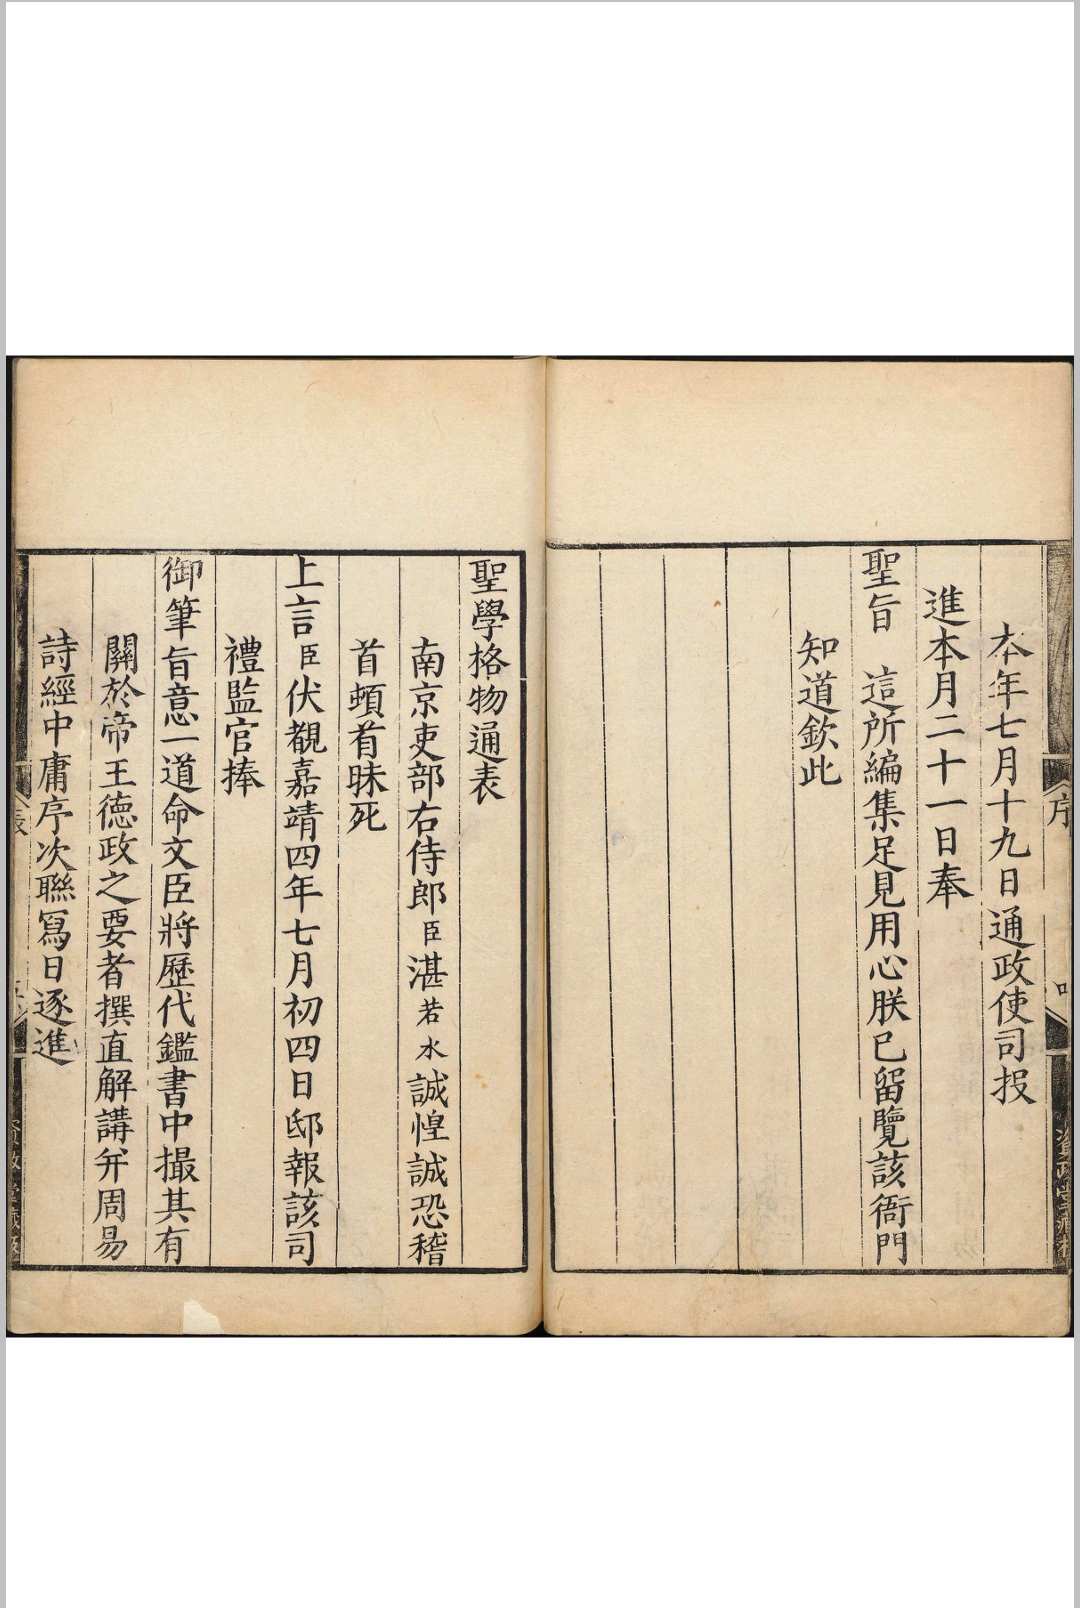 本年七月十九日通政使司投
進本月二十一日奉
聖旨 這所編集足見用心朕已留覽該衙門
知道欽此
聖學格物通表
南京吏部右侍郎臣湛若水誠惶誠恐稽
首頓首昧死
上言臣伏覩嘉靖四年七月初四日邸報該司
禮監官捧
御筆旨意一道命文臣將歷代鑑書中撮其有
關於帝王德政之要者撰直解講并周易
詩經中庸序次聯寫日逐進
序
表